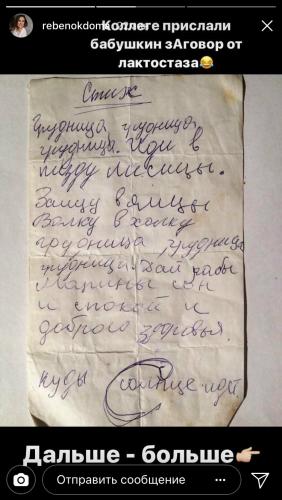 rebenokdoma
Коллеге прислали
бабушкин зАговор от
лактостаза😂
Стих
Грудница, грудница,
грудница. Иди в
пизду лисицы.
Зайцу в яйцы
Волку в холку
грудница, грудница
грудница. Дай рабы
Марины сон
и спокой и
доброго здоровья.
куды солнце идет
Дальше - больше👉🏻
Отправить сообщение